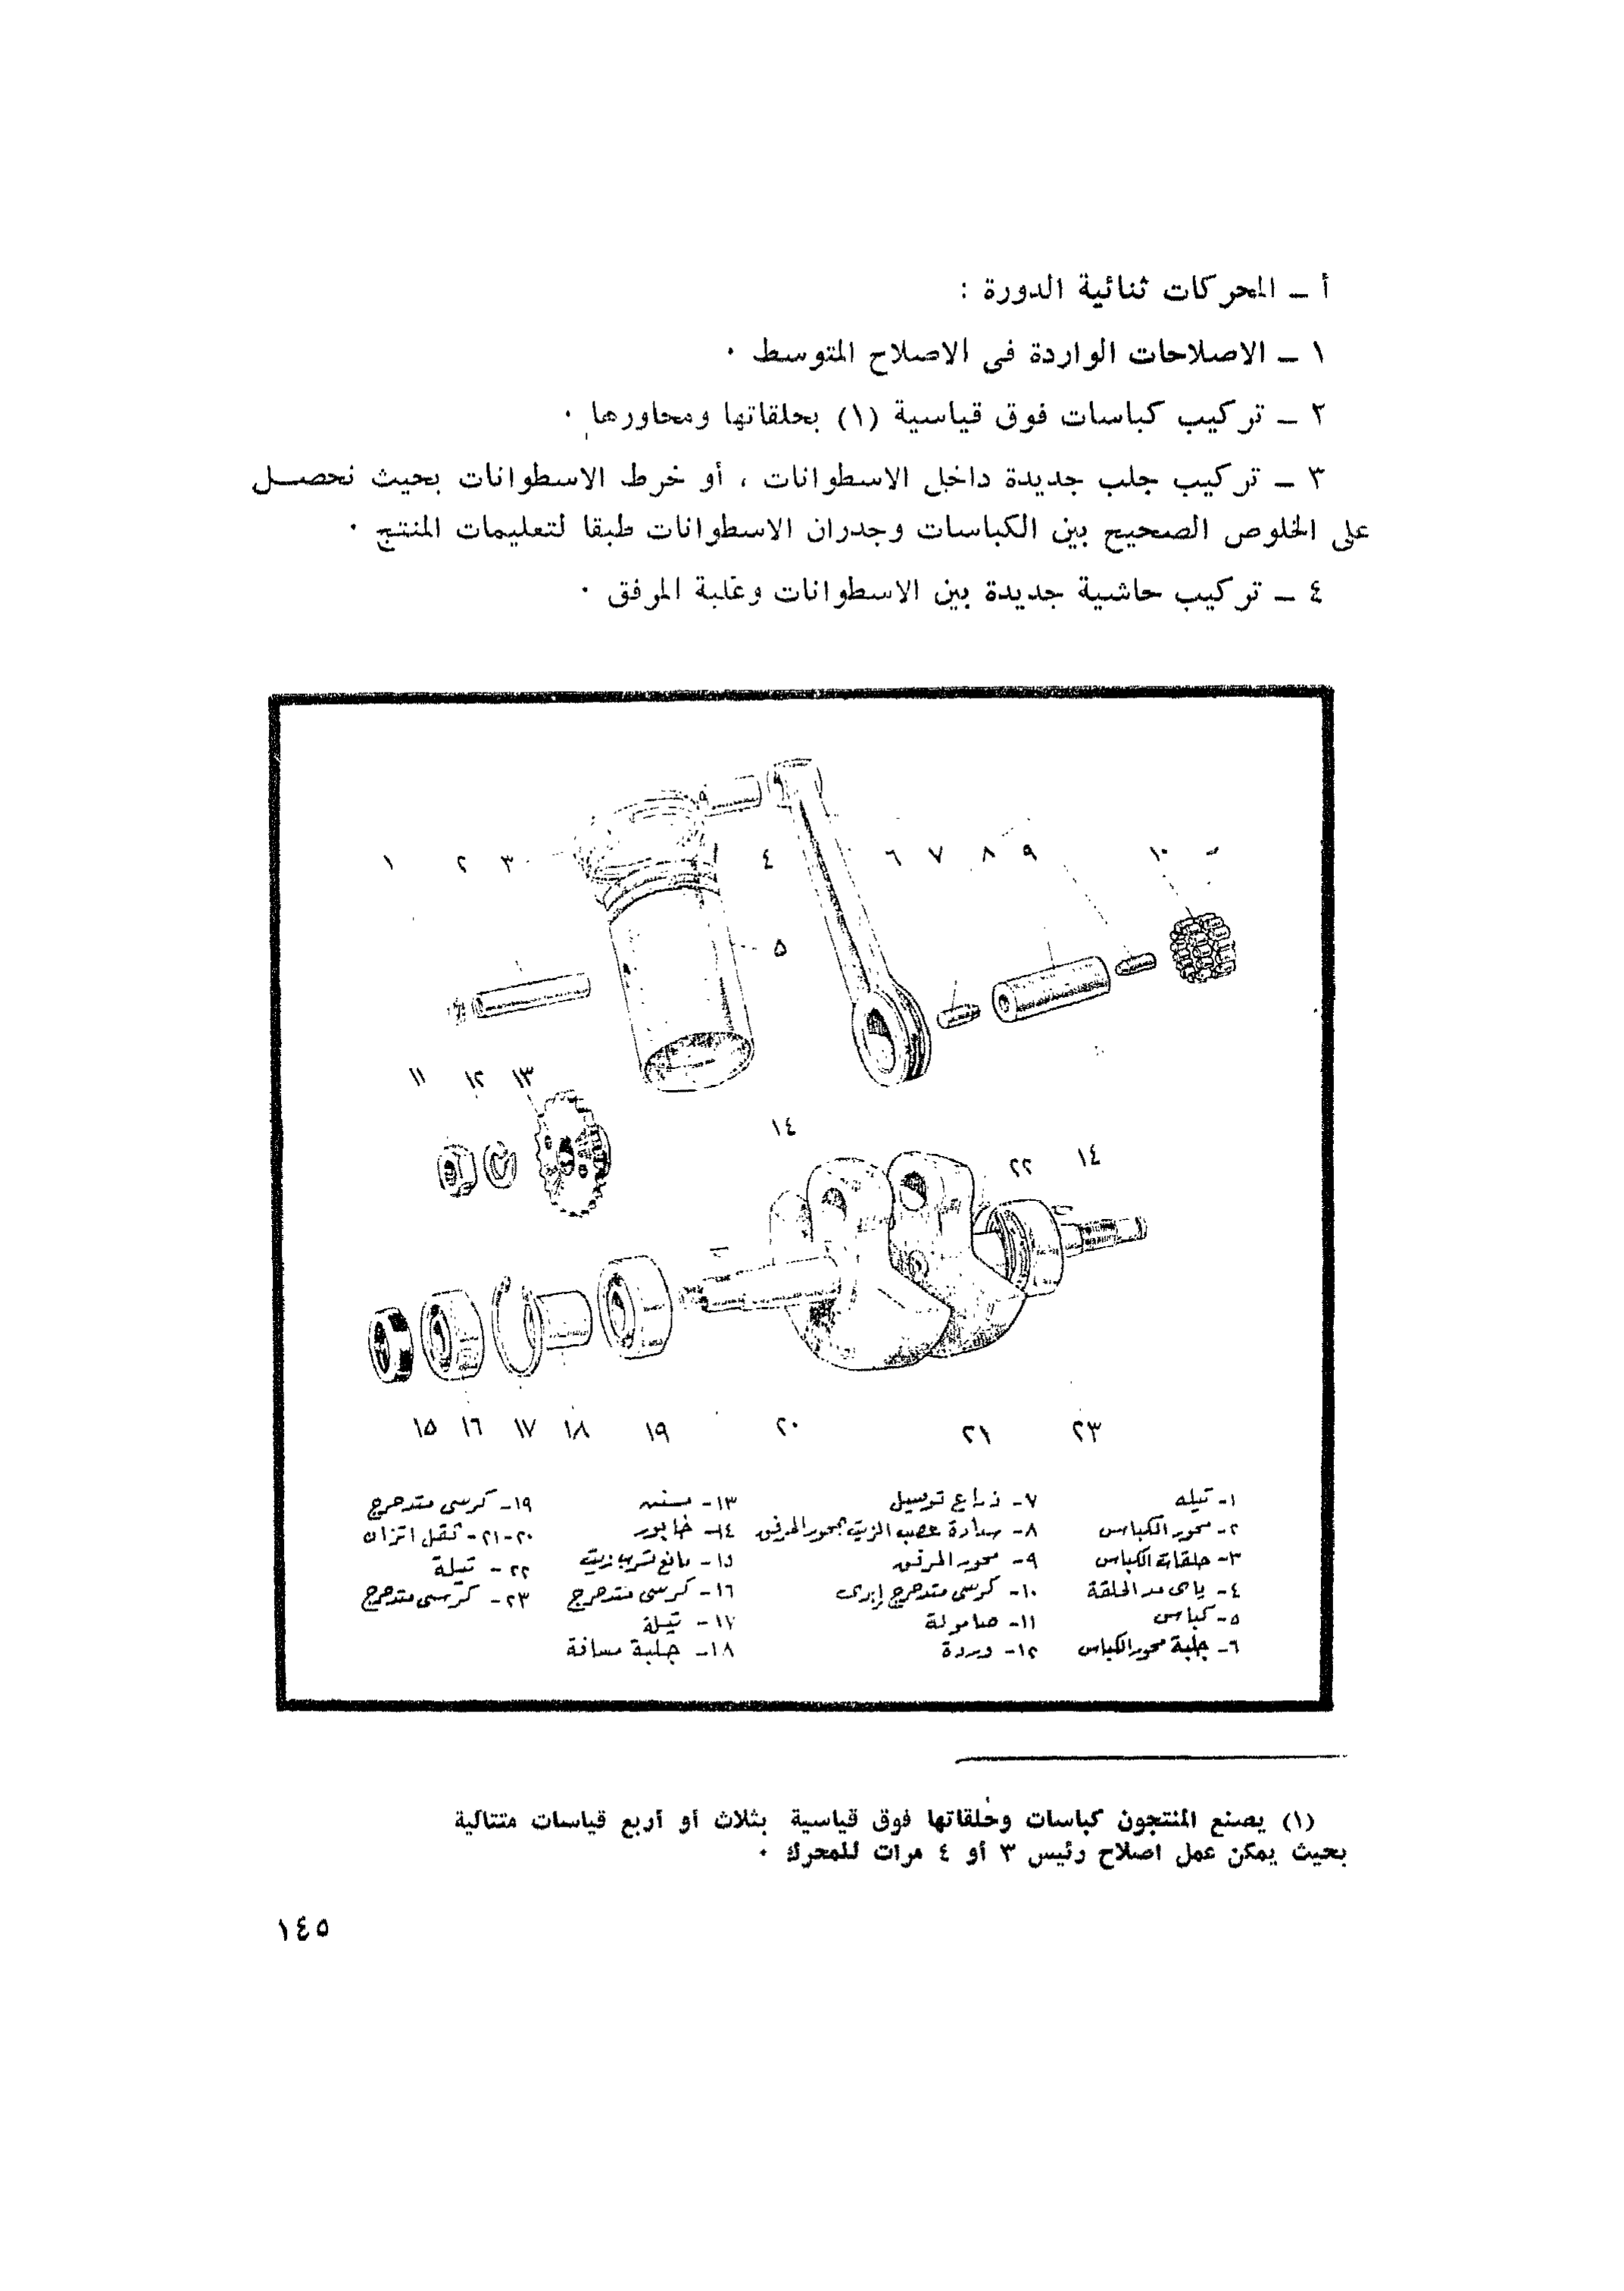 أ – المحركات ثنائية الدورة :
١ – الاصلاحات الواردة فى الاصلاح المتوسط ٠
٢ – تركيب كباسات فوق قياسية (١) بحلقاتها ومحاورها ٠
٣ – تركيب جلب جديدة داخل الاسطوانات ، أو خرط الاسطوانات بحيث نحصل
على الخلوص الصحيح بين الكباسات وجدران الاسطوانات طبقا لتعليمات المنتج ٠
٤ – تركيب حاشية جديدة بين الاسطوانات وعلبة المرفق ٠
١ ٢ ٣ ٤ ٦ ٧ ٨ ٩ ١٠
٥
١١ ١٢ ١٣
١٤ ٢٢ ١٤
١٥ ١٦ ١٧ ١٨ ١٩ ٢٠ ٢١ ٢٣
١- تيله
٢- محور الكباس
٣- حلقات الكباس
٤- ياى مد الحلقة
٥- كباس
٦- جلبة محور الكباس
٧- ذراع توصيل
٨- سدادة الزيت بمحور المرفق
٩- محور المرفق
١٠- كرسى متدحرج إبرى
١١- صامولة
١٢- وردة
١٣- مسنن
١٤- خابور
١٥- مانع تسرب زيت
١٦- كرسى متدحرج
١٧- تيلة
١٨- جلبة مسافة
١٩- كرسى متدحرج
٢٠-٢١- ثقل اتزان
٢٢- تيلة
٢٣- كرسى متدحرج
(١) يصنع المنتجون كباسات وحلقاتها فوق قياسية بثلاث أو أربع قياسات متتالية
بحيث يمكن عمل اصلاح رئيس ٣ أو ٤ مرات للمحرك ٠
١٤٥